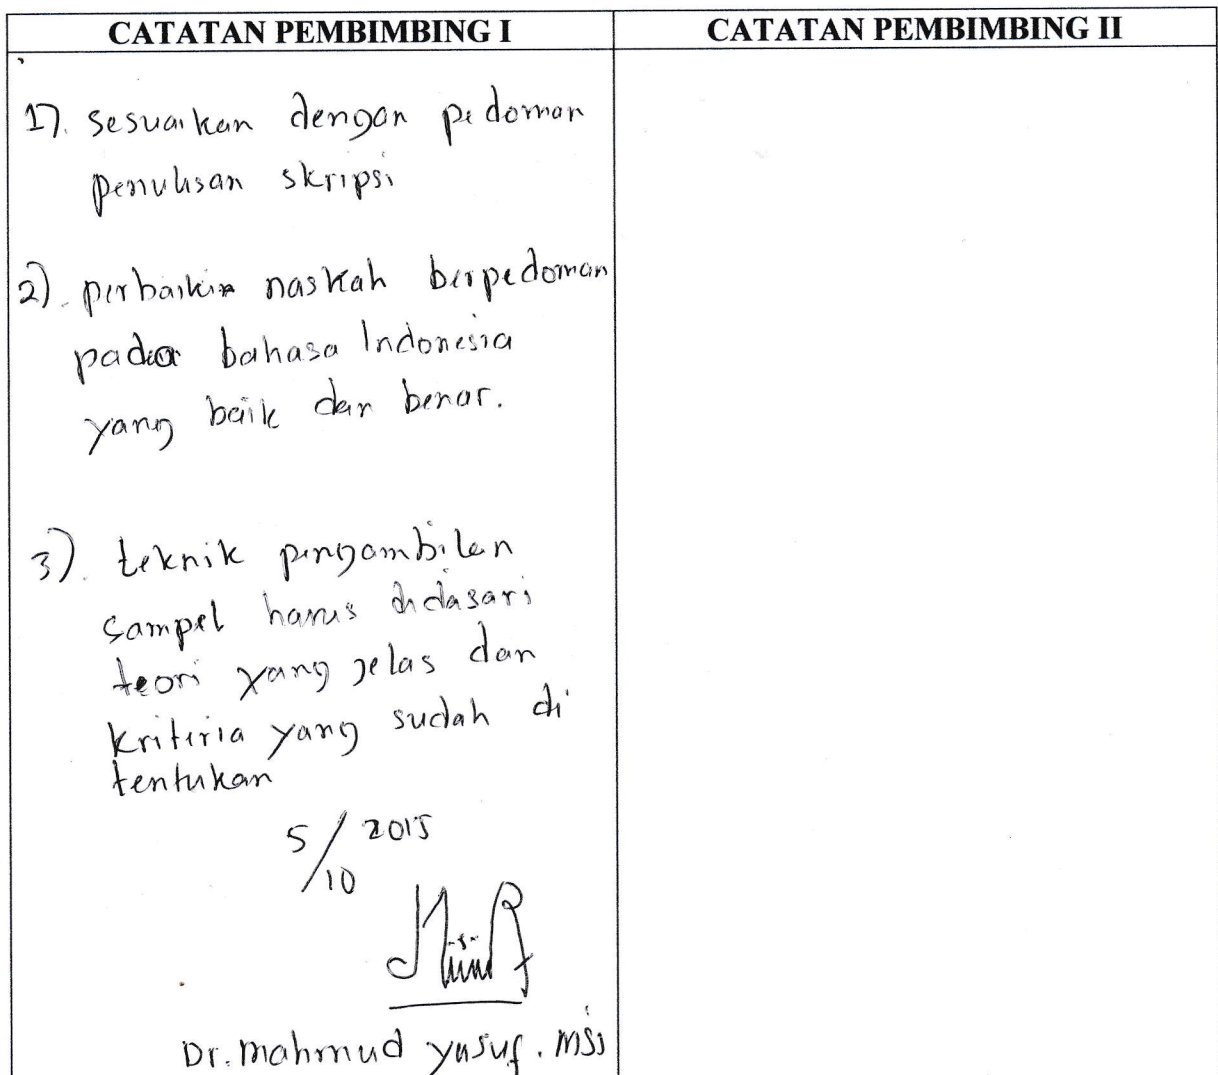 CATATAN PEMBIMBING I
CATATAN PEMBIMBING II
1). sesuaikan dengan pedoman
penulisan skripsi
2). perbaikan naskah berpedoman
pada bahasa Indonesia
yang baik dan benar.
3). teknik pengambilan
sampel harus didasari
teori yang jelas dan
kriteria yang sudah di
tentukan
5/10 2015
Dr. mahmud yusuf. MSi